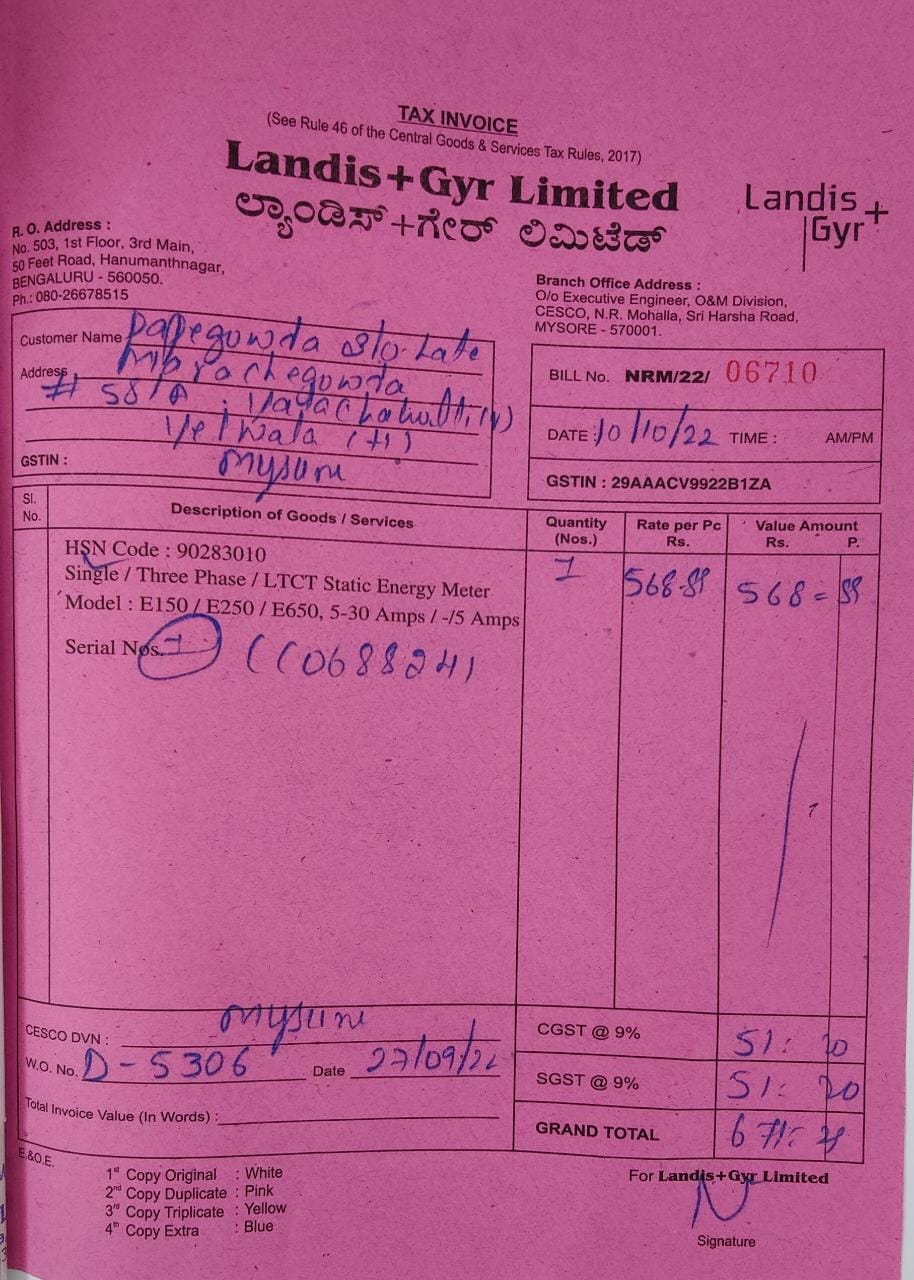 TAX INVOICE
(See Rule 46 of the Central Goods & Services Tax Rules, 2017)
Landis+Gyr Limited
ಲ್ಯಾಂಡಿಸ್+ಗೇರ್ ಲಿಮಿಟೆಡ್
Landis+
Gyr
R. O. Address :
No. 503, 1st Floor, 3rd Main,
50 Feet Road, Hanumanthnagar,
BENGALURU - 560050.
Ph.: 080-26678515
Branch Office Address :
O/o Executive Engineer, O&M Division,
CESCO, N.R. Mohalla, Sri Harsha Road,
MYSORE - 570001.
Customer Name Papegowda S/o. Late
Address
# 58/A
Yelwala (H)
GSTIN : Mysuru
BILL No. NRM/22/ 06710
DATE : 10/10/22 TIME : AM/PM
GSTIN : 29AAACV9922B1ZA
Sl. No. Description of Goods / Services Quantity (Nos.) Rate per Pc Rs. Value Amount Rs. P.
HSN Code : 90283010 1 568-89 568=89
Single / Three Phase / LTCT Static Energy Meter
Model : E150 / E250 / E650, 5-30 Amps / -/5 Amps
Serial Nos. 1 CC0688241
CESCO DVN : Mysuru
W.O. No. D-5306 Date 27/09/22
Total Invoice Value (In Words) :
CGST @ 9% 51: 20
SGST @ 9% 51: 20
GRAND TOTAL 671:
E.&O.E.
1st Copy Original : White
2nd Copy Duplicate : Pink
3rd Copy Triplicate : Yellow
4th Copy Extra : Blue
For Landis+Gyr Limited
Signature